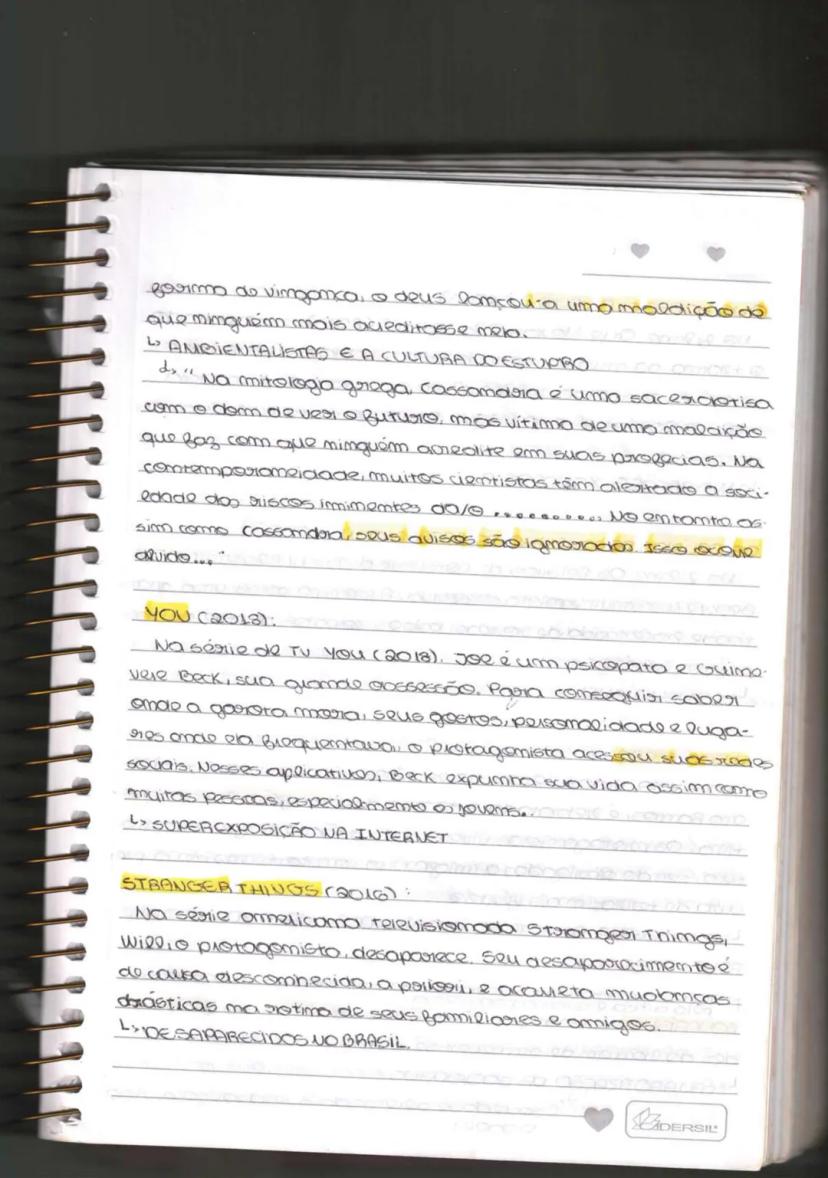 forma de vingança, o deus lançou-a uma maldição de
que ninguém mais acreditasse nela.
↳ AMBIENTALISTAS E A CULTURA DO ESTUPRO
↳ "Na mitologia grega, Cassandra é uma sacerdotisa
com o dom de ver o futuro, mas vítima de uma maldição
que faz com que ninguém acredite em suas profecias. Na
contemporaneidade, muitos cientistas têm alertado a soci-
edade dos riscos iminentes da/o .......... No entanto as-
sim como Cassandra, seus avisos são ignorados. Isso ocorre
devido..."
YOU (2018):
Na série de TV YOU (2018), Joe é um psicopata e
vele Beck, sua grande obssessão. Para conseguir saber
onde a garota mora, seus gostos, personalidade e luga-
res onde ela frequentava, o protagonista acessou suas redes
sociais. Nesses aplicativos, Beck expunha sua vida assim como
muitas pessoas, especialmente os jovens.
↳ SUPEREXPOSIÇÃO NA INTERNET
STRANGER THINGS (2016):
Na série americana televisionada Stranger Things,
Will, o protagonista, desaparece. Seu desaparecimento é
de causa desconhecida, a priori, e acarreta mudanças
drásticas na rotina de seus familiares e amigos.
↳ DESAPARECIDOS NO BRASIL.